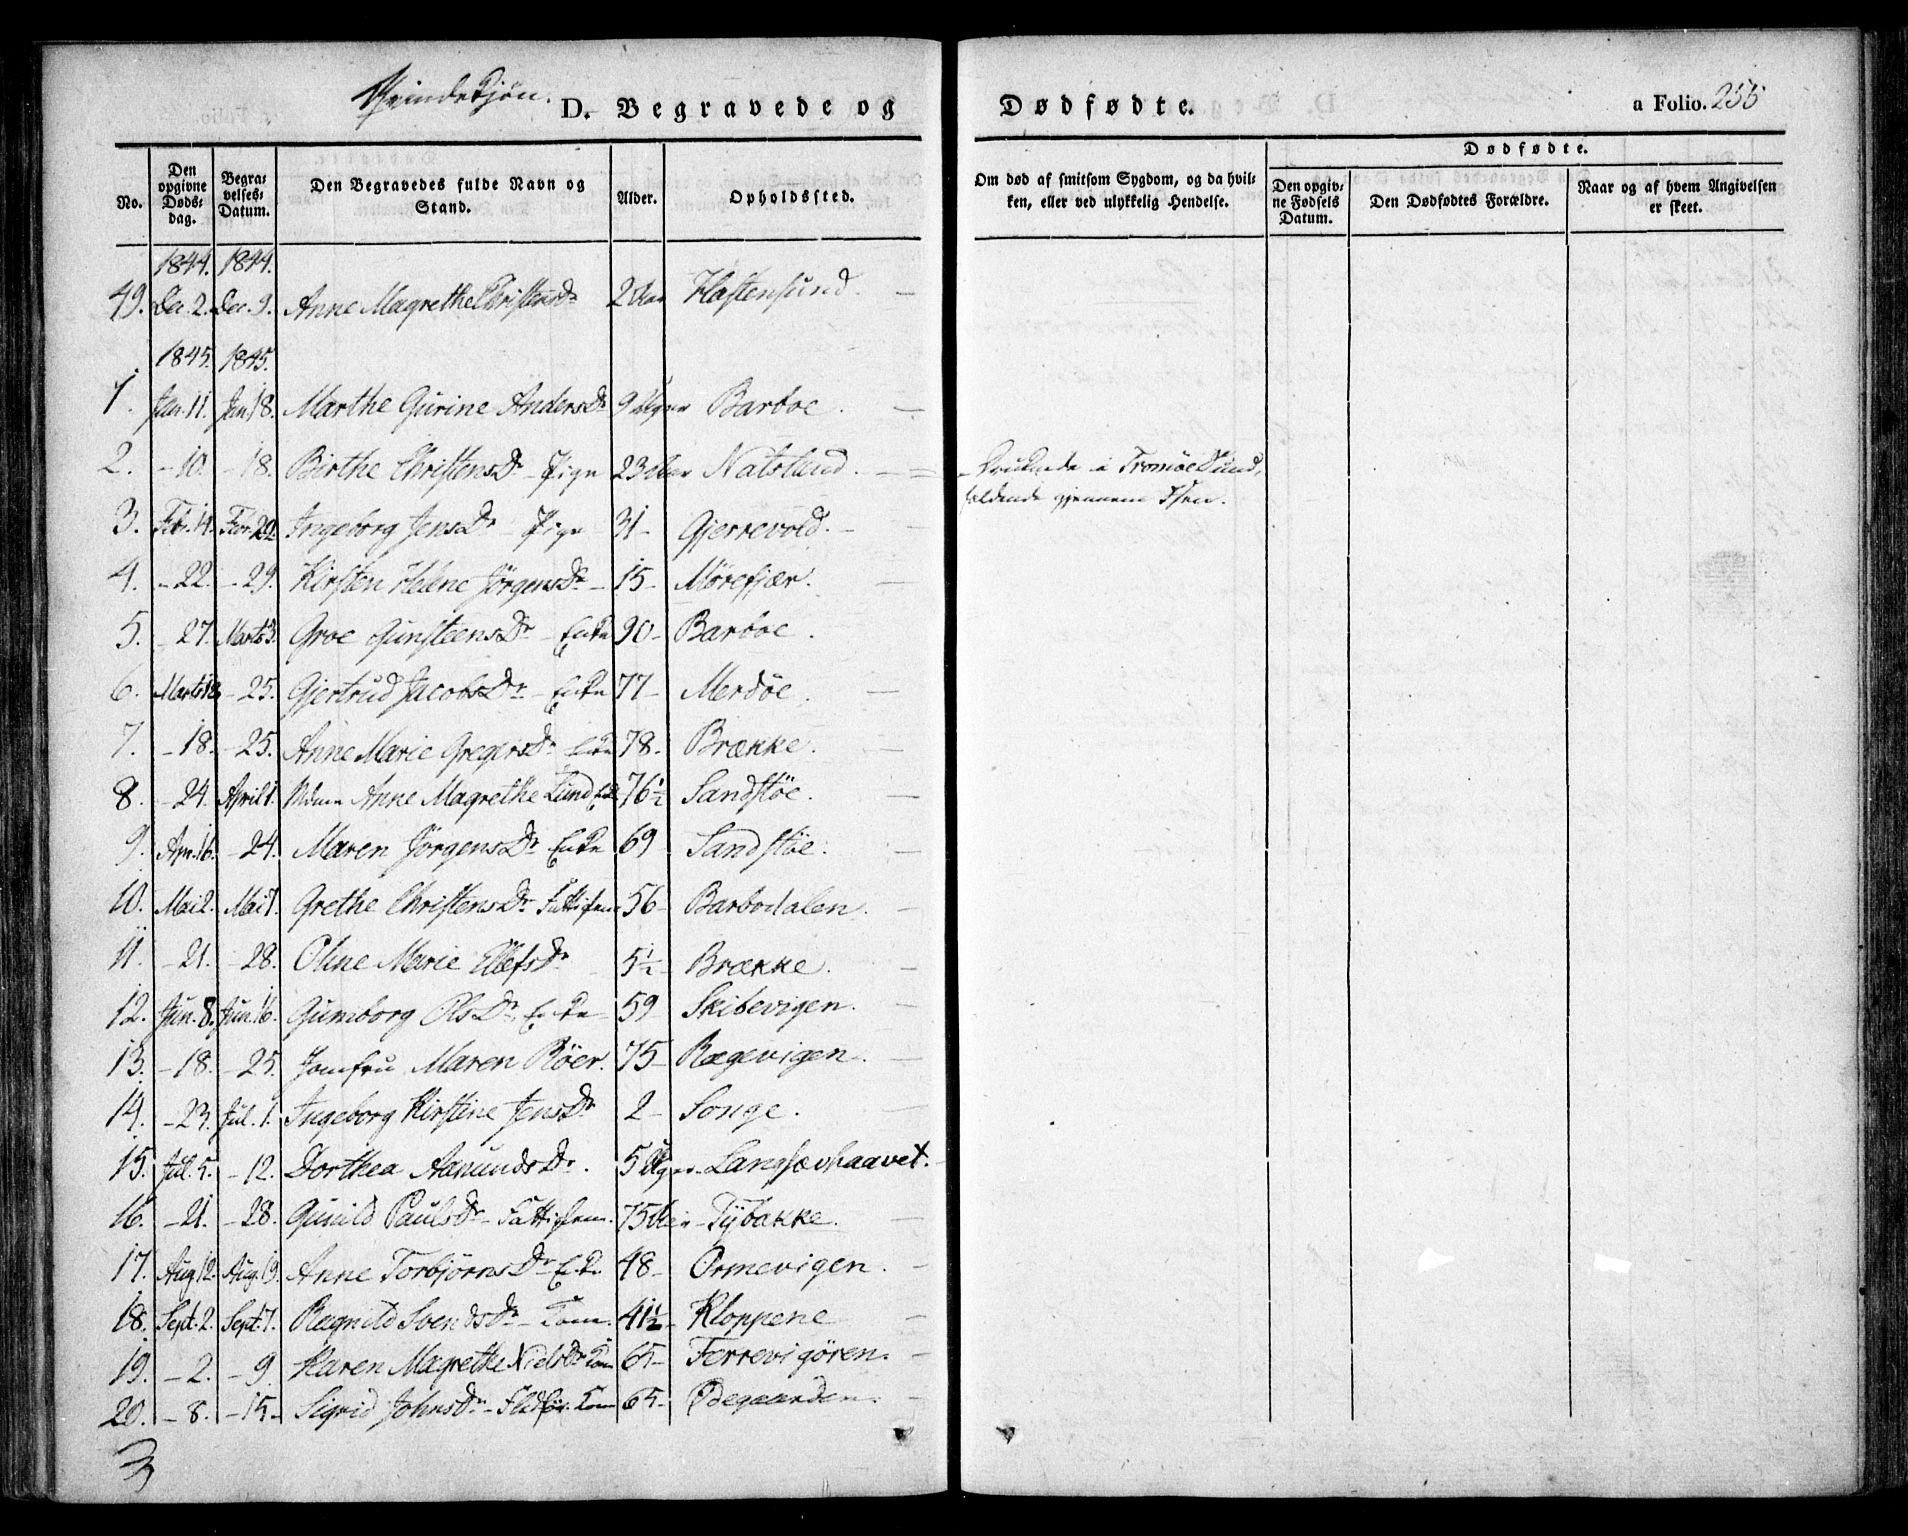 Qvindekjøn.
D. Begravede og Dødfødte.
a Folio. 255
No.
Den opgivne Døds-dag.
Begra-velses-Datum.
Den Begravedes fulde Navn og Stand.
Alder.
Opholdssted.
Om død af smitsom Sygdom, og da hvil-ken, eller ved ulykkelig Hendelse.
Dødfødte.
Den opgiv-ne Fødsels Datum.
Den Dødfødtes Forældre.
Naar og af hvem Angivelsen er skeet.
1844. 1844.
49. Dec. 2. Dec. 9. Anne Magrethe ChristensDr 2 Aar Hastensund. —
1845. 1845.
1. Jan. 11. Jan. 18. Marthe Gurine AndersDr 9 Uger Barboe. —
2. - 10. - 18. Birthe ChristensDr - Pige 23 Aar Natslund. — Druknede i Tromøe Sund, faldende gjennem Isen.
3. Febr. 14. Febr. 22. Ingeborg JensDr - Pige 31 - Gjerrevold. —
4. - 22. - 29. Kirsten Helene JørgensDr - 15 - Mørefjær. —
5. - 27. Marts 3. Groe GunsteensDr - Enke 90 - Barboe.
6. Marts 18 - 25. Gjertrud JacobsDr - Enke 77 - Merdøe. —
7. - 18. - 25. Anne Marie GregersDr Enke 78. Brække. —
8. - 24. April 1. Mdme Anne Magrethe Lund 76½ Sandstøe. —
9. Apr. 16. - 24. Maren JørgensDr Enke 69 Sandstøe. —
10. Mai 2. Mai 7. Grethe ChristensDr 56 Barbodalen. —
11. - 21. - 28. Oline Marie EllefsDr 5½ Brække. —
12. Jun. 8. Jun. 16. Gunborg OlsDr, Enke 59 Skibevigen. —
13. - 18. - 25. Jomfru Maren Röer. 75 Rægevigen. —
14. - 23. Jul. 1. Ingeborg Kirstine JensDr 2 - Songe. —
15. Jul. 5. - 12. Dorthea AanundsDr. 5 Uger - Langsævhaavet.
16. - 21. - 28. Gunild PaulsDr - 75 Aar - Tÿbakke. —
17. Aug 12. Aug. 19. Anne TorbjørnsDr Enke 48 - Ormevigen. —
18. Sept. 2. Sept. 7. Ragnild SvendsDr - Kone. 41½ Kloppene —
19. - 2. - 9. Karen Magrethe NielsDr Kone 65 - Færrevigøren. —
20. - 8. - 15 - Sigrid JohnsDr - Kone 65 - Ødegaarden. —